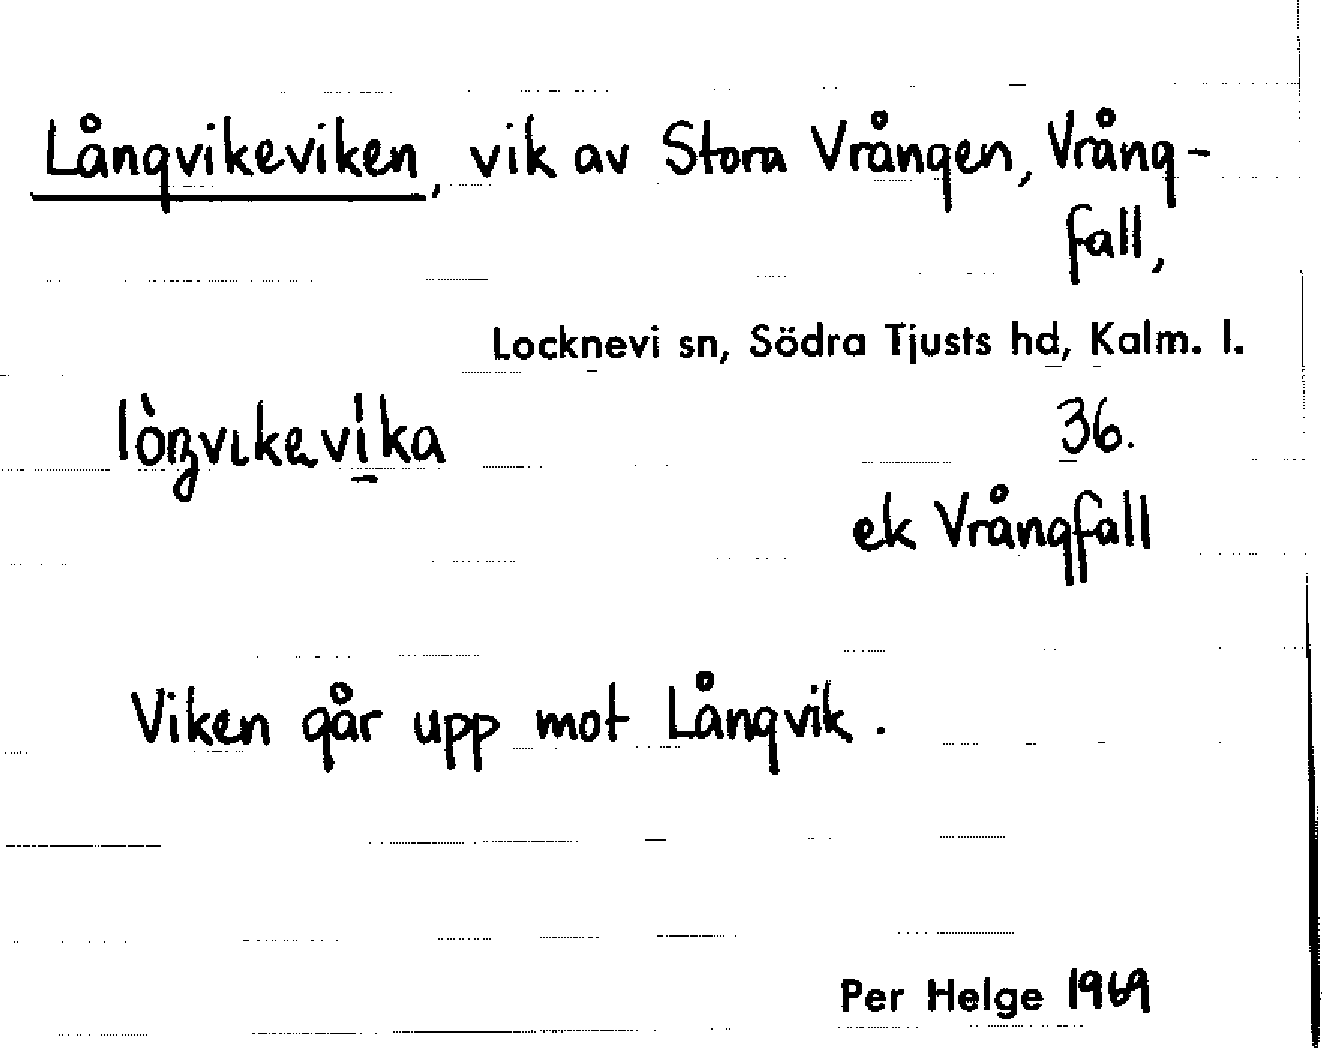 Långvikeviken, vik av Stora Vrången, Vrång-
fall,
Locknevi sn, Södra Tjusts hd, Kalm. l.
36.
ek Vrångfall
Viken går upp mot Långvik.
Per Helge 1969